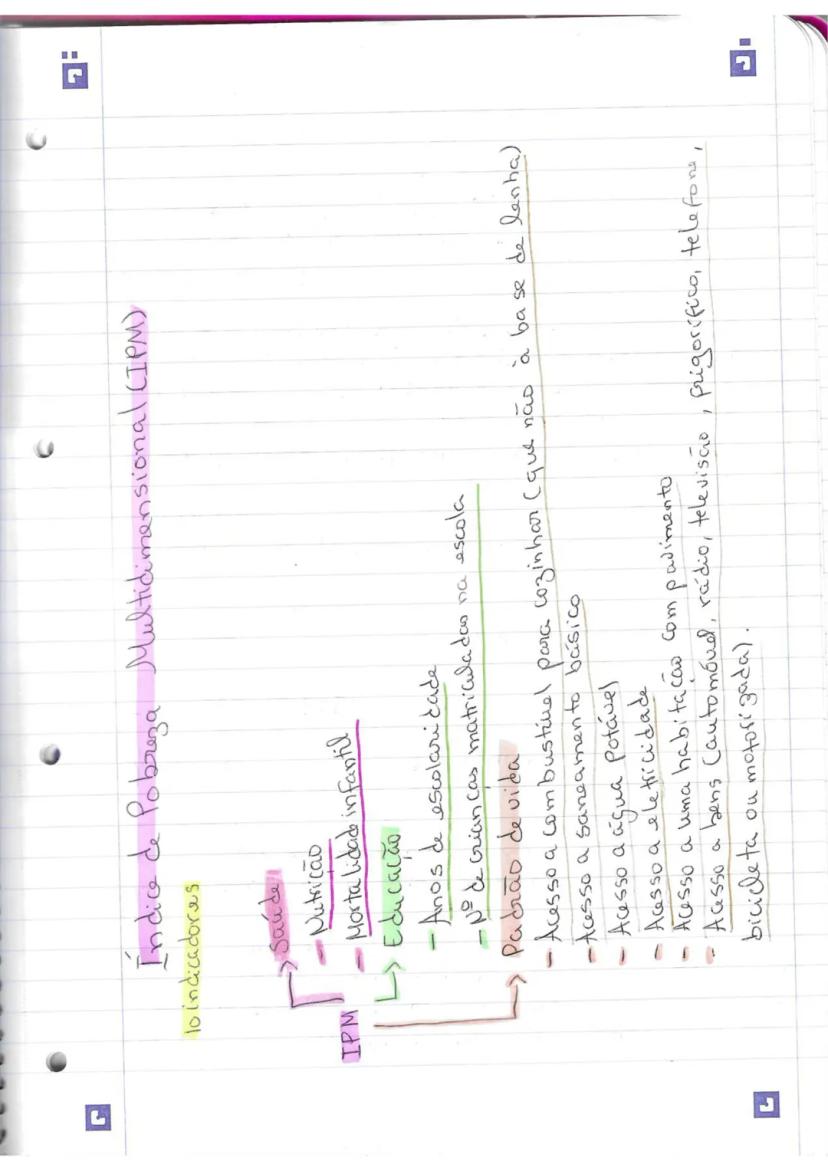 Índice de Pobreza Multidimensional (IPM)
10 indicadores
IPM
Saúde
- Nutrição
- Mortalidade infantil
Educação
- Anos de escolaridade
- Nº de crianças matriculadas na escola
Padrão de vida
- Acesso a combustível para cozinhar (que não à base de lenha)
- Acesso a saneamento básico
- Acesso a água potável
- Acesso a eletricidade
- Acesso a uma habitação com pavimento
- Acesso a bens (automóvel, rádio, televisão, frigorífico, telefone,
bicicleta ou motorizada).